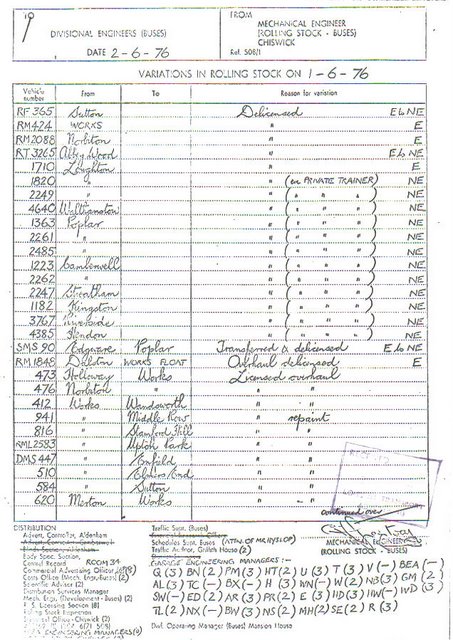 19
DIVISIONAL ENGINEERS (BUSES)
DATE 2-6-76
FROM
MECHANICAL ENGINEER
(ROLLING STOCK - BUSES)
CHISWICK
Ref. 508/1
VARIATIONS IN ROLLING STOCK ON 1-6-76
Vehicle number From To Reason for variation
RF 365 Sutton Delicensed E to NE
RM 424 WORKS " E
RM 2088 Norbiton " E
RT 3265 Abbey Wood " E to NE
1710 Loughton " E
1820 " " (ex PRIVATE TRAINER) NE
2249 " " ( " " " ) NE
4640 Walthamstow " ( " " " ) NE
1363 Poplar " ( " " " ) NE
2261 " " ( " " " ) NE
2485 " " ( " " " ) NE
1223 Camberwell " ( " " " ) NE
2262 " " ( " " " ) NE
2247 Streatham " ( " " " ) NE
1182 Kingston " ( " " " ) NE
3767 Riverside " ( " " " ) NE
4385 Hendon " ( " " " ) NE
SMS 90 Edgware Poplar Transferred & delicensed E to NE
RM 1848 Dalston WORKS FLOAT Overhaul delicensed E
473 Holloway Works Licensed overhaul
476 Norbiton " " "
412 Works Wandsworth " "
941 " Middle Row " repaint
816 " Stamford Hill " "
RML 2583 " Upton Park " "
DMS 447 " Enfield " "
510 " Elmers End " "
584 " Sutton " "
620 Merton Works " "
continued over
MECHANICAL ENGINEER
(ROLLING STOCK - BUSES)
DISTRIBUTION
Advert. Controller, Aldenham
Body Spec. Section,
Central Record ROOM 34
Commercial Advertising Officer
Costs Office (Mech. Engr. Buses) (2)
Scientific Adviser (2)
Distribution Services Manager
Mech. Engr. (Development - Buses) (2)
R. S. Licensing Section (8)
Rolling Stock Engineer
Traffic Supt. (Buses)
Schedules Supt. (Buses) (ATTN. OF MR HYSLOP)
Traffic Auditor, Griffith House (2)
GARAGE ENGINEERING MANAGERS:-
Q (3) BN (2) FM (3) HT (2) U (3) T (3) V (-) BEA (-)
AL (3) TC (-) BX (-) H (3) WN (-) W (2) NB (3) GM (2)
SW (-) ED (2) AR (3) PR (2) E (3) HD (3) HW (-) WD (3)
TL (2) NX (-) BW (3) NS (2) MH (2) SE (2) R (3)
Divl. Operating Manager (Buses) Mansion House